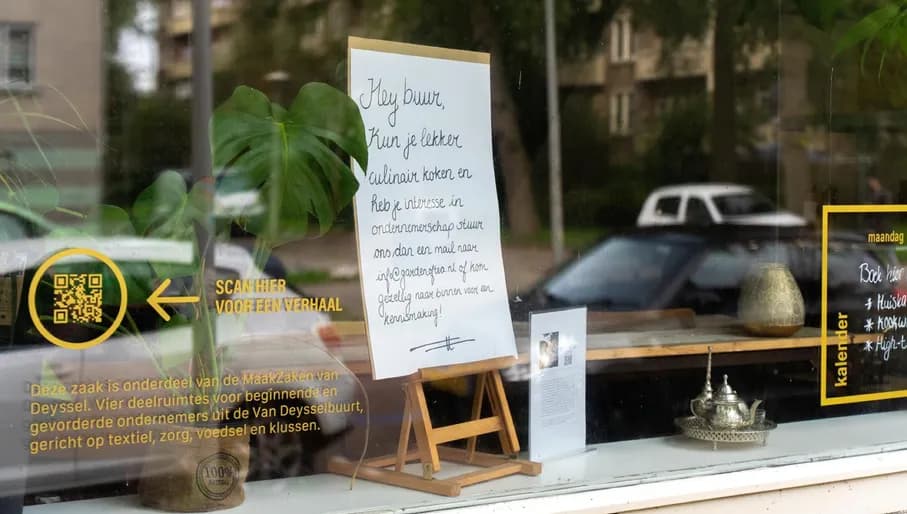 Hey buur,
Kun je lekker
culinair koken en
heb je interesse in
ondernemerschap stuur
ons dan een mail naar
info@gardenofrea.nl of kom
gezellig naar binnen voor een
kennismaking!
SCAN HIER
VOOR EEN VERHAAL
Deze zaak is onderdeel van de MaakZaken van
Deyssel. Vier deelruimtes voor beginnende en
gevorderde ondernemers uit de Van Deysselbuurt,
gericht op textiel, zorg, voedsel en klussen.
100%
kalender
maandag
Boek hier
* Huiska
* Kookw
* High-t